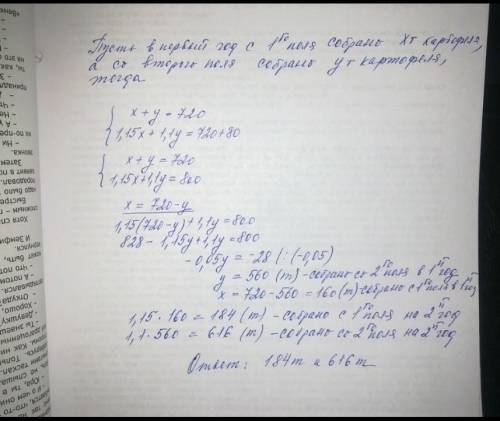 Пусть в первый год с 1го поля собрано xт картофеля,
а со второго поля собрано yт картофеля,
тогда
x + y = 720
1,15x + 1,1y = 720+80
x + y = 720
1,15x+1,1y = 800
x = 720-y
1,15(720-y)+1,1y = 800
828 - 1,15y+1,1y = 800
-0,05y = -28 |:(-0,05)
y = 560 (т) - собрано со 2го поля в 1й год
x = 720-560 = 160(т)-собрано с 1го поля в 1й год
1,15 · 160 = 184 (т) - собрано с 1го поля на 2й год
1,1 · 560 = 616 (т) - собрано со 2го поля на 2й год
Ответ: 184т и 616т